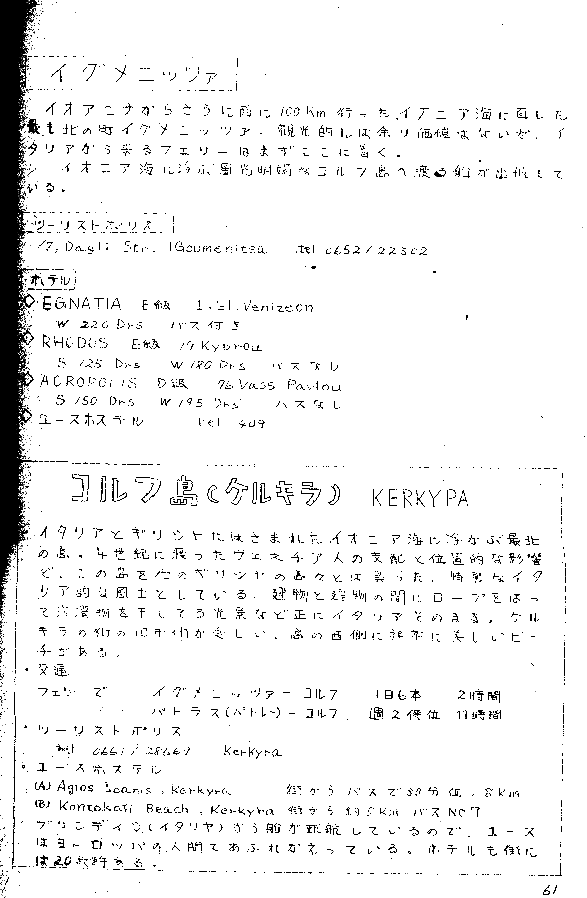 イグメニッツァ
イオアニナからさらに西に100Km行ったイオニア海に面した
最も北の町イグメニッツァ。観光的には余り価値はないが、イ
タリアから来るフェリーはまずここに着く。
イオニア海に浮ぶ風光明媚なコルフ島へ渡る船が出航して
いる。
ツーリストポリス
17, Dagli Str. IGoumenitsa tel 0652/22302
ホテル
◇EGNATIA E級 1. El. Venizeon
W 220 Drs バス付き
◇RHODOS E級 19 Kyprou
S 125 Drs W 180 Drs バスなし
◇ACROPOLIS D級 Vass Pavlou
S 150 Drs W 195 Drs バスなし
◇ユースホステル tel 409
コルフ島(ケルキラ) KERKYPA
イタリアとギリシャにはさまれたイオニア海に浮かぶ最北
の島。4世紀に渡ったヴェネチア人の支配と位置的な影響
で、この島を他のギリシャの島々とは異った、特異なイタ
リア的な風土としている。建物と建物の間にロープをはっ
て洗濯物を干してる光景など正にイタリアそのまま。ケル
キラの街の旧市街が美しい。島の西側に非常に美しいビー
チがある。
・交通
フェリーで イグメニッツァーコルフ 1日6本 2時間
パトラス(パトレー)ーコルフ 週2便位 11時間
・ツーリストポリス
tel 0661/ Kerkyra
・ユースホステル
(A) Agios Ioanis, Kerkyra 街からバスで 分位、8Km
(B) Kontokali Beach, Kerkyra 街から Km バスNO7
ブリンディシ(イタリヤ)から船が就航しているので、ユース
はヨーロッパの人間であふれかえっている。ホテルも街に
は20数軒ある。
61